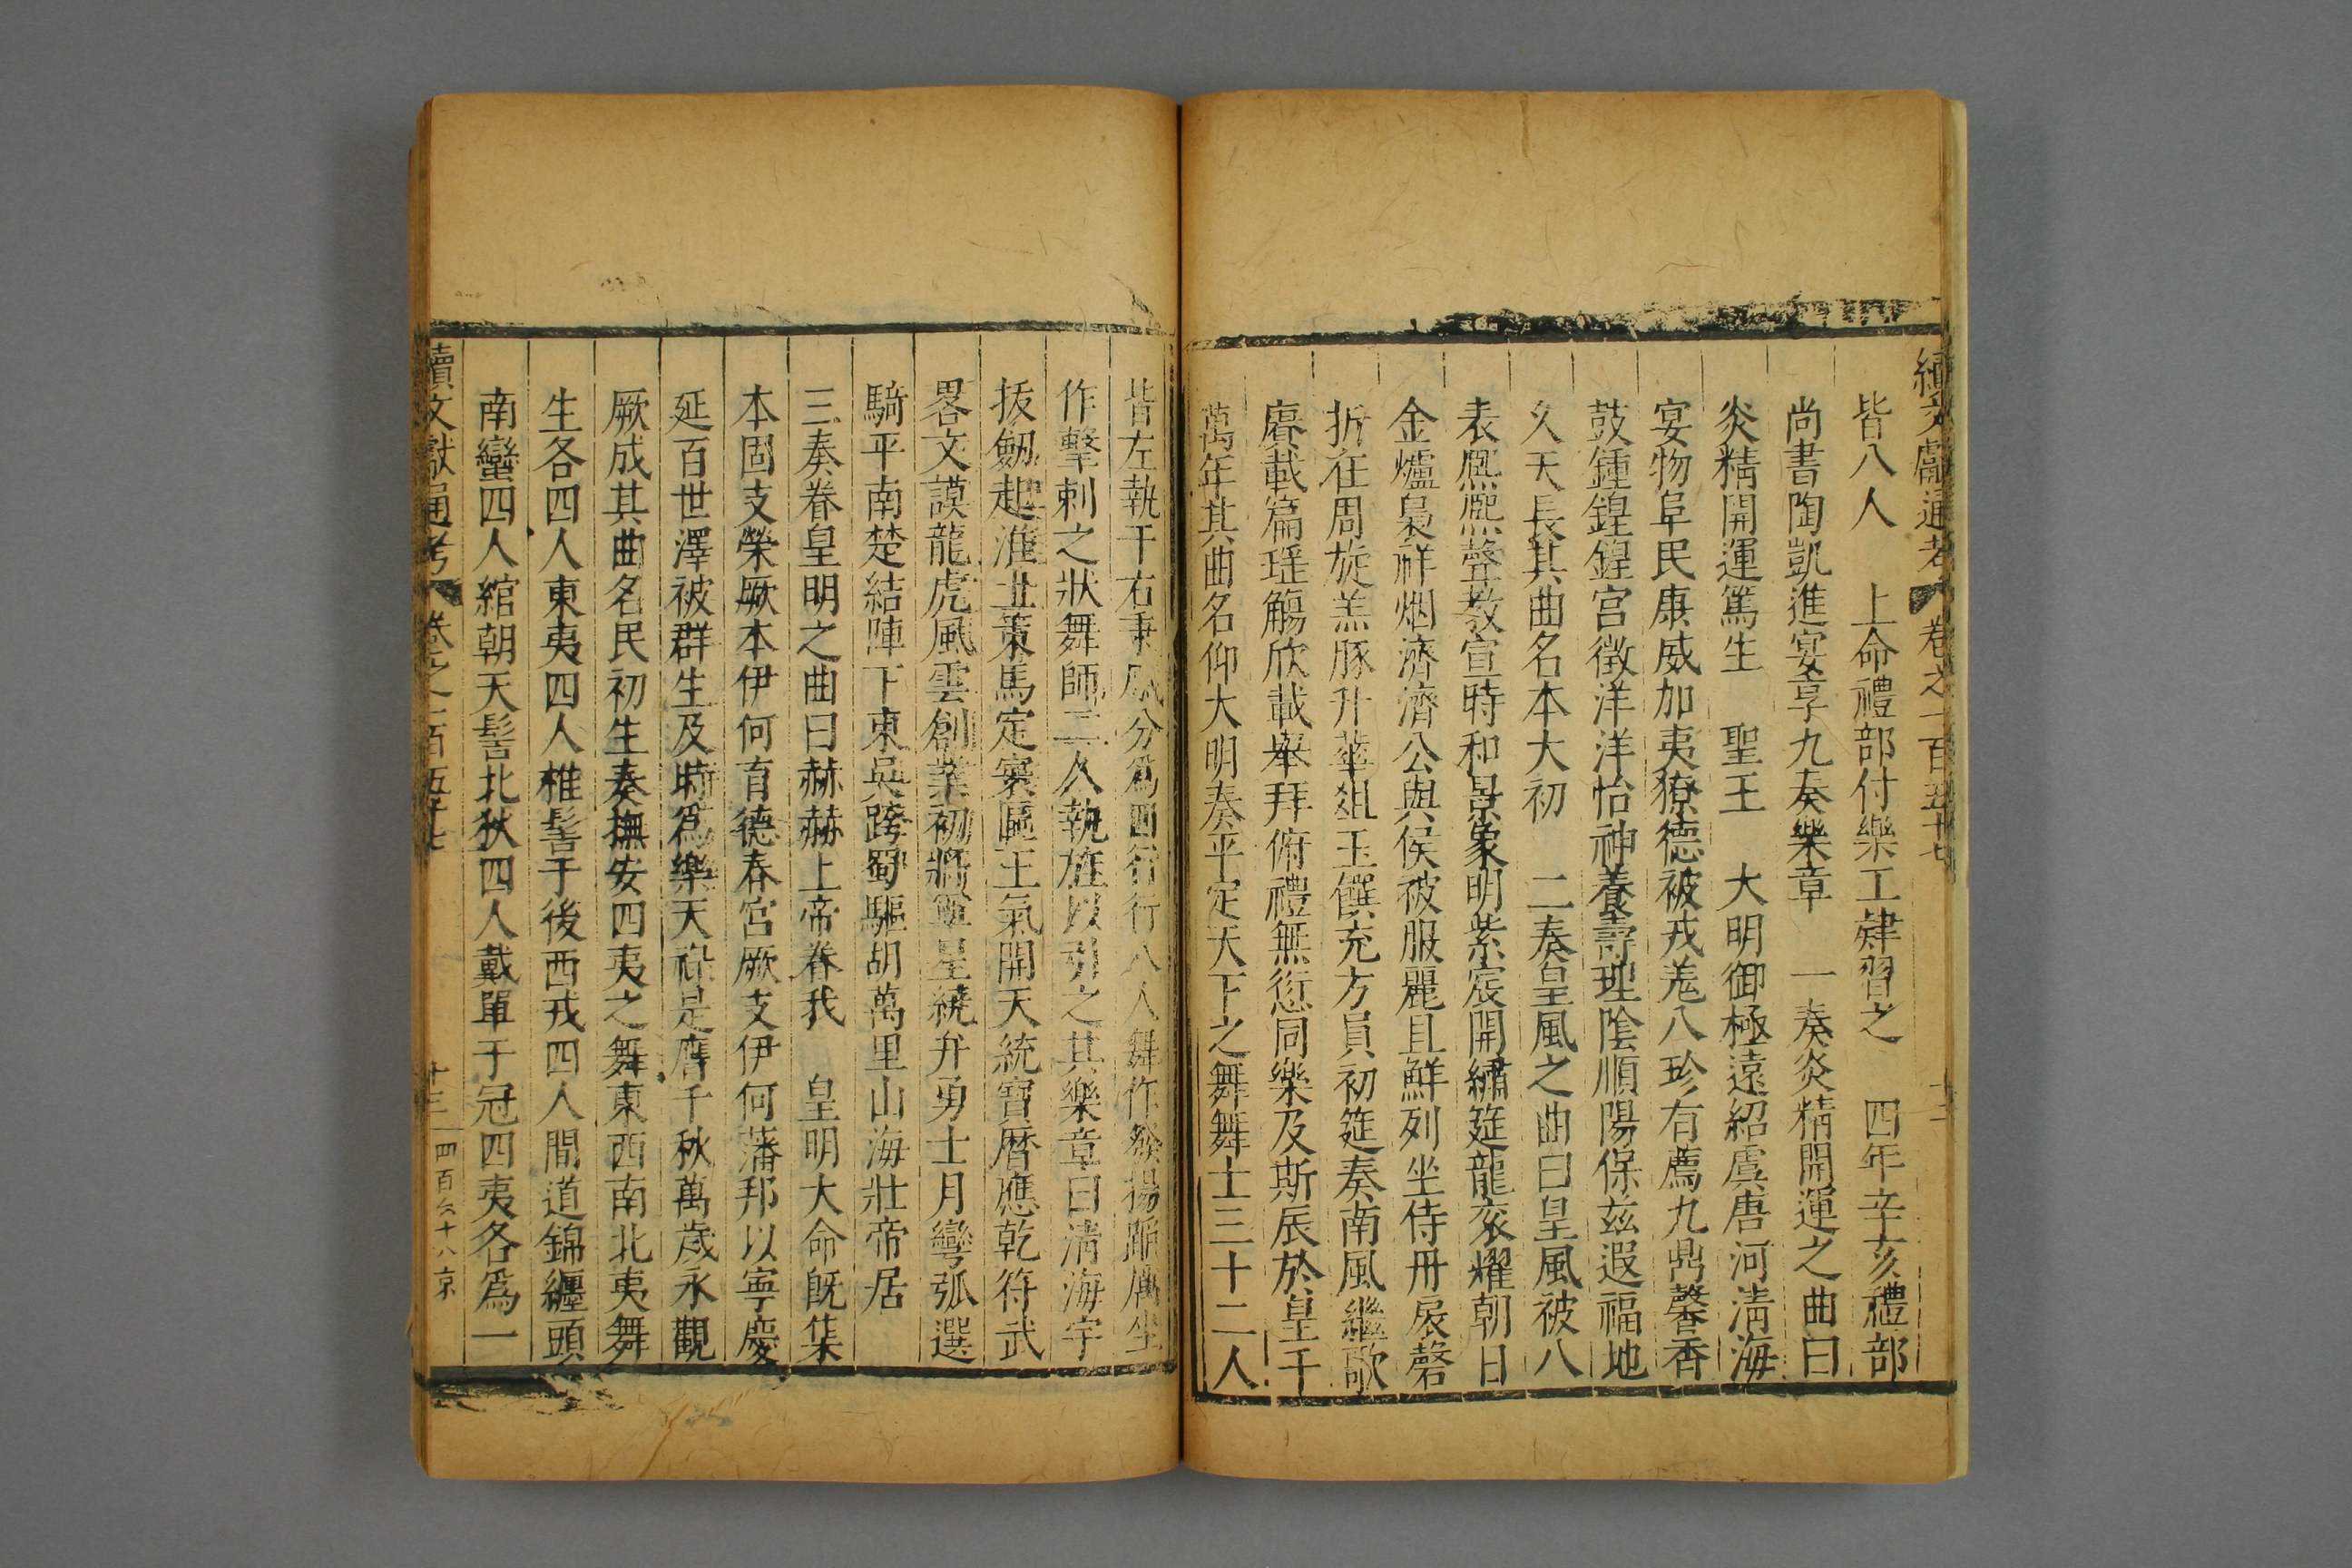 續文獻通考 卷之一百五十七 十二
皆八人 上命禮部付樂工肄習之 四年辛亥禮部
尚書陶凱進宴享九奏樂章 一奏炎精開運之曲曰
炎精開運篤生 聖王 大明御極遠紹虞唐河淸海
宴物阜民康威加夷獠德被戎羗八珍有薦九鼎馨香
鼓鍾鍠鍠宫徵洋洋怡神養壽理陰順陽保兹遐福地
久天長其曲名本大初 二奏皇風之曲曰皇風被八
表熈熈聲教宣時和景象明紫宸開繡筵龍衮耀朝日
金爐梟祥烟濟濟公與侯被服麗且鮮列坐侍丹扆磬
折在周旋羔豚升華俎玉饌充方員初筵奏南風繼歌
賡載篇瑶觴欣載舉拜俯禮無愆同樂及斯辰於皇千
萬年其曲名仰大明奏平定天下之舞舞士三十二人
皆左執干右秉戚分爲四行行八人舞作發揚蹈厲坐
作擊刺之狀舞師二人執旌以引之其樂章曰淸海宇
拔劒起淮土策馬定寰區王氣開天統寶曆應乾符武
畧文謨龍虎風雲創業初將軍星繞弁勇士月彎弧選
騎平南楚結陣下東吳跨蜀驅胡萬里山海壯帝居
三奏眷皇明之曲曰赫赫上帝眷我 皇明大命旣集
本固支榮厥本伊何育德春宮厥支伊何藩邦以寧慶
延百世澤被群生及時爲樂天祿是膺千秋萬歲永觀
厥成其曲名民初生奏撫安四夷之舞東西南北夷舞
生各四人東夷四人椎髻于後西戎四人間道錦纏頭
南蠻四人綰朝天髻北狄四人戴單于冠四夷各爲一
續文獻通考 卷之一百五十七 十三 四百六十八 京